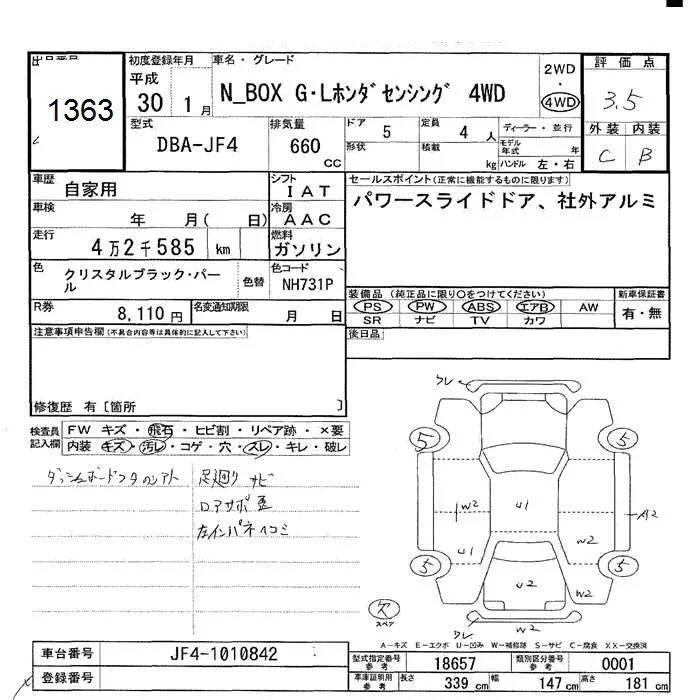 出品番号
1363
初度登録年月
平成
30 1月
車名・グレード
N_BOX G・Lホンダセンシング 4WD
2WD
・
4WD
評価点
3.5
外装 内装
C B
型式
DBA-JF4
排気量
660
cc
ドア 5
定員 4 人
形状
積載 kg
ディーラー・並行
モデル年式 年
ハンドル 左・右
車歴
自家用
シフト
IAT
車検 年 月( 日)
冷房
AAC
走行
4万2千585 km
燃料
ガソリン
色
クリスタルブラック・パール
色替
色コード
NH731P
R券
8,110円
名変通知期限
月 日
セールスポイント(正常に機能するものに限ります)
パワースライドドア、社外アルミ
装備品(純正品に限り○をつけてください)
PS PW ABS エアB AW
SR ナビ TV カワ
新車保証書
有・無
後日品
注意事項申告欄(不具合内容等は具体的に記入して下さい)
修復歴 有〔箇所 〕
検査員
記入欄
FW キズ・飛石・ヒビ割・リペア跡・×要
内装 キズ・汚レ・コゲ・穴・スレ・キレ・破レ
足廻り サビ
左インパネイコミ
5 5
W2 U1 A2
U1 W2
5 5
U2
W2
欠
スペア
A-キズ E-エクボ U-凹み W-補修跡 S-サビ C-腐食 XX-交換済
車台番号
JF4-1010842
登録番号
型式指定番号
参考
18657
類別区分番号
参考
0001
車庫証明用
参考
長さ 339 cm
幅 147 cm
高さ 181 cm